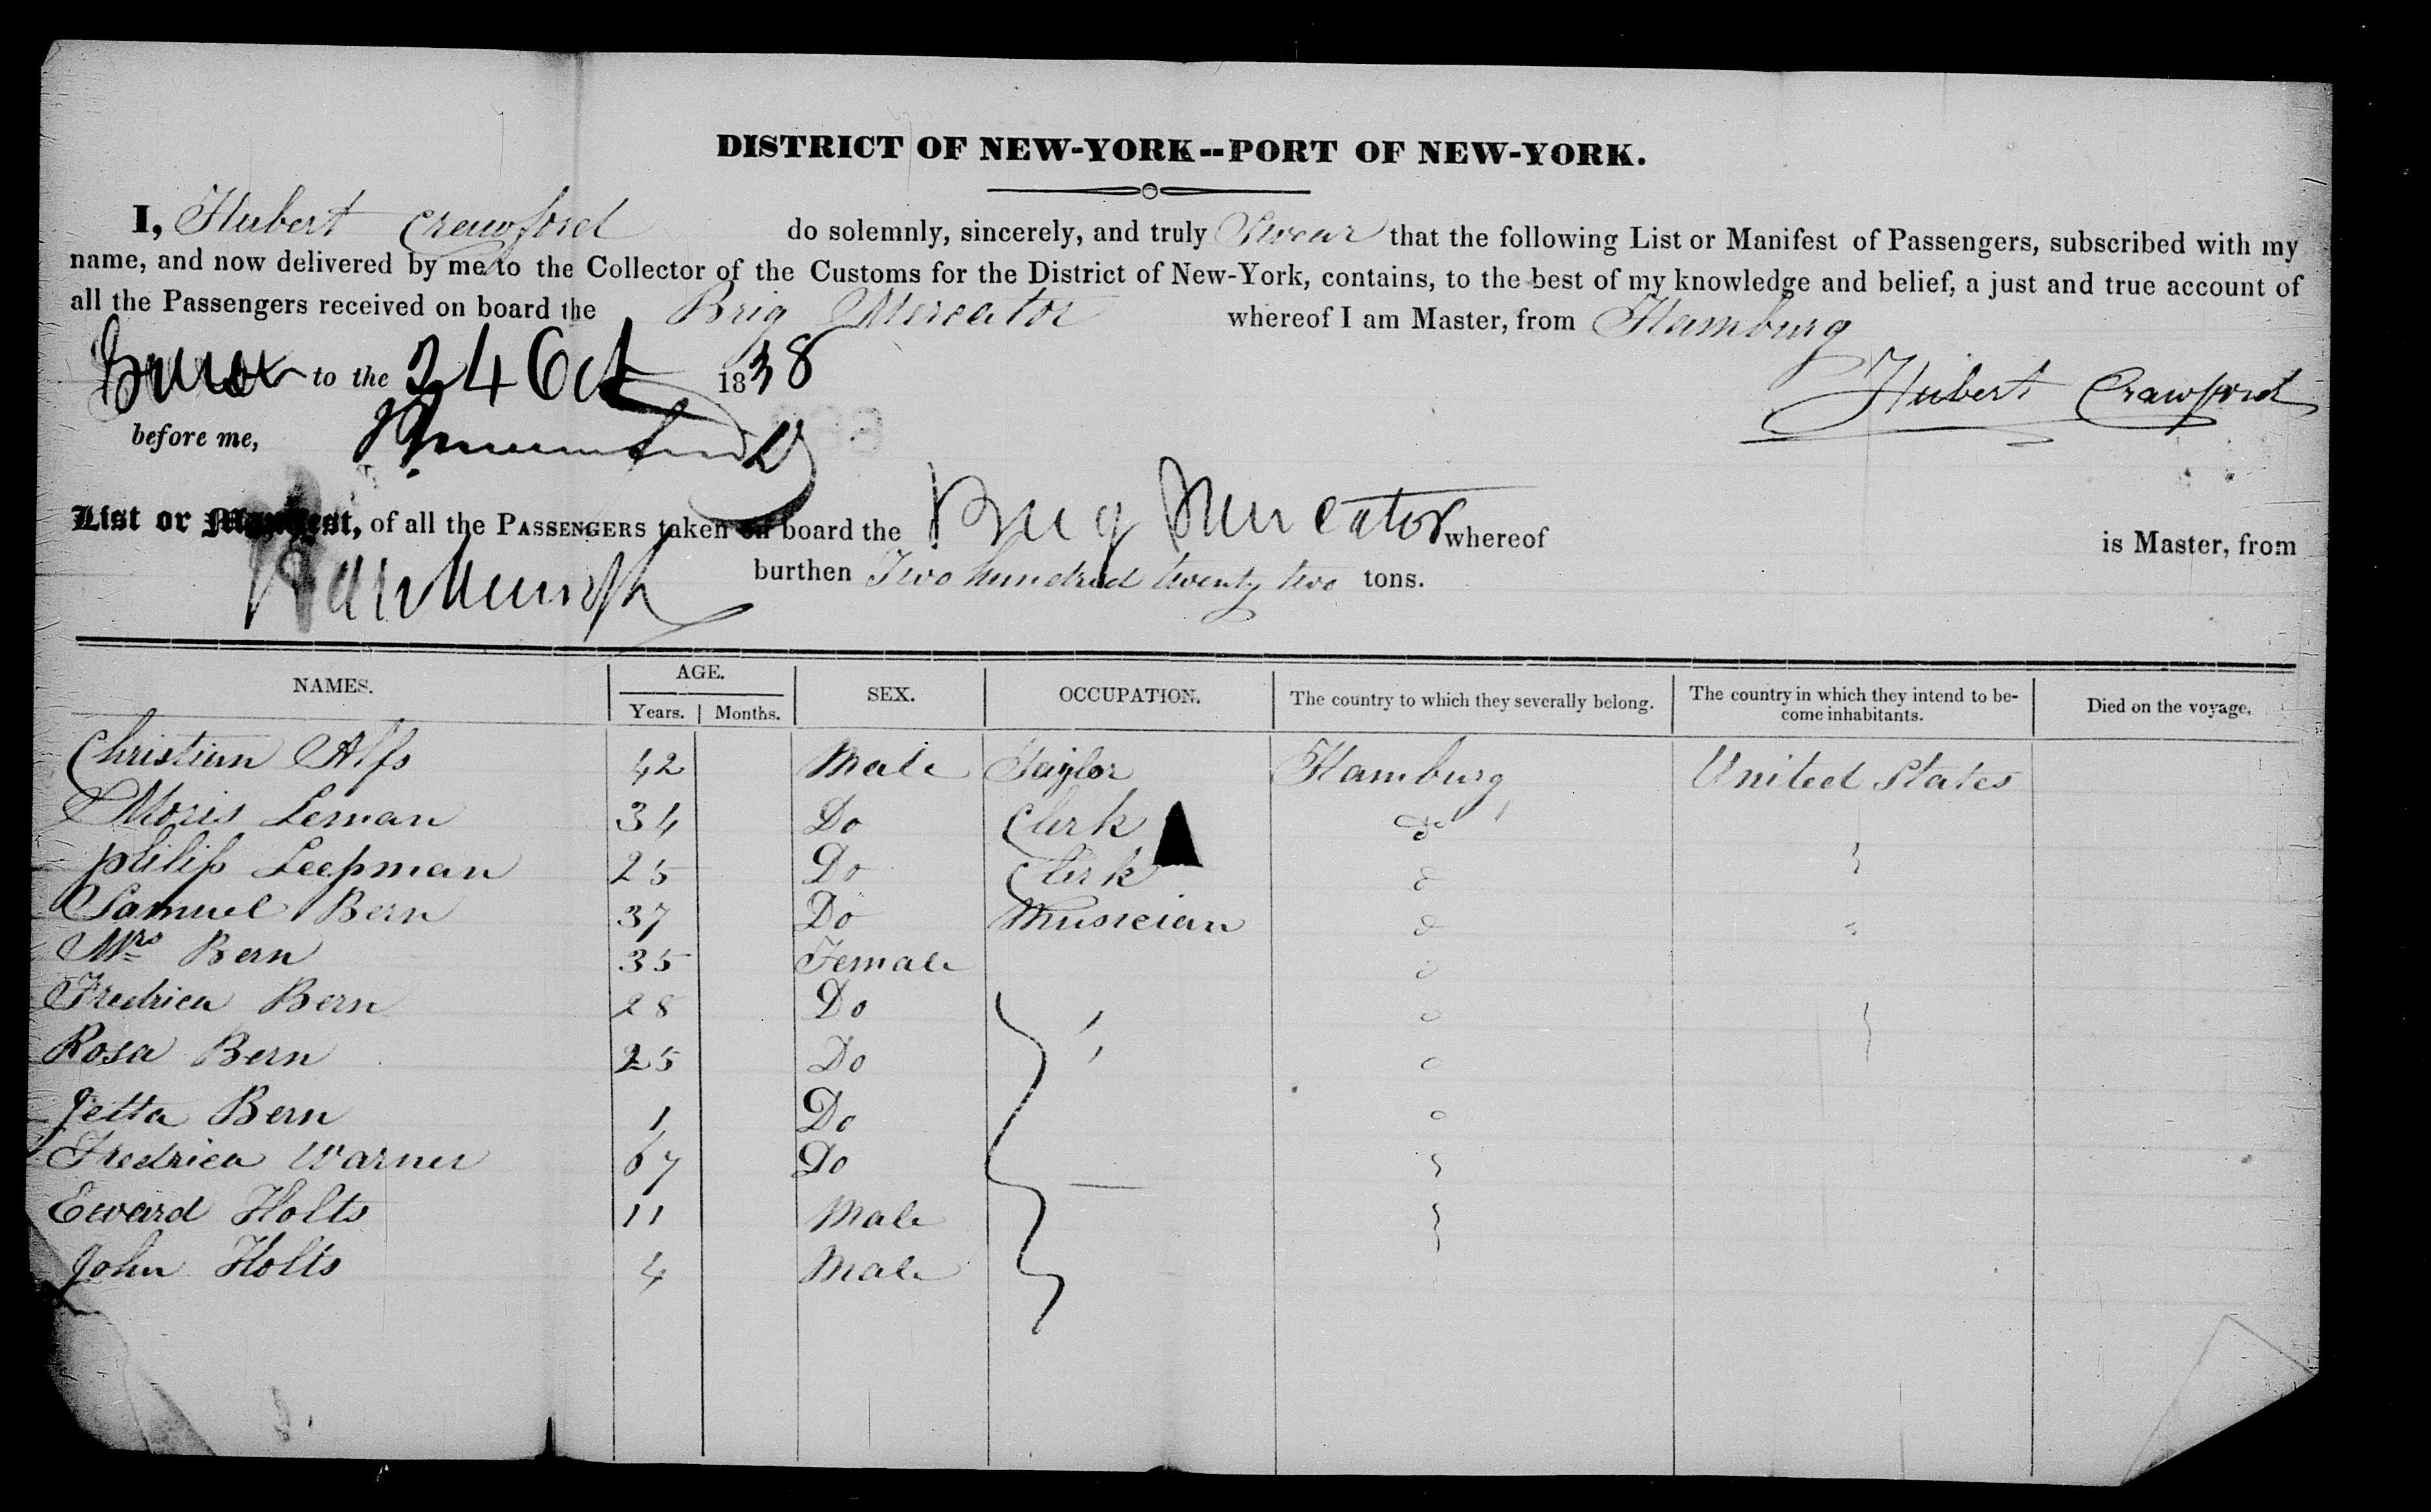 DISTRICT OF NEW-YORK--PORT OF NEW-YORK.
I, Hubert Crawford do solemnly, sincerely, and truly Swear that the following List or Manifest of Passengers, subscribed with my
name, and now delivered by me to the Collector of the Customs for the District of New-York, contains, to the best of my knowledge and belief, a just and true account of
all the Passengers received on board the Brig Mercator whereof I am Master, from Hamburg
to the 24 Oct 1838
Hubert Crawford
before me,
List or Manifest, of all the PASSENGERS taken on board the Brig Mercator whereof is Master, from
burthen Two hundred twenty two tons.
NAMES. AGE. SEX. OCCUPATION. The country to which they severally belong. The country in which they intend to be-
come inhabitants. Died on the voyage.
Years. Months.
Christian Alfs 42 Male Taylor Hamburg United States
Moris Leman 34 Do Clerk do
Philip Leepman 25 Do Clerk
Samuel Bern 37 Do Musician
Mrs Bern 35 Female
Fredrica Bern 28 Do
Rosa Bern 25 Do
Jetta Bern 1 Do
Fredrica Warner 67 Do
Eward Holts 11 Male
John Holts 4 Male